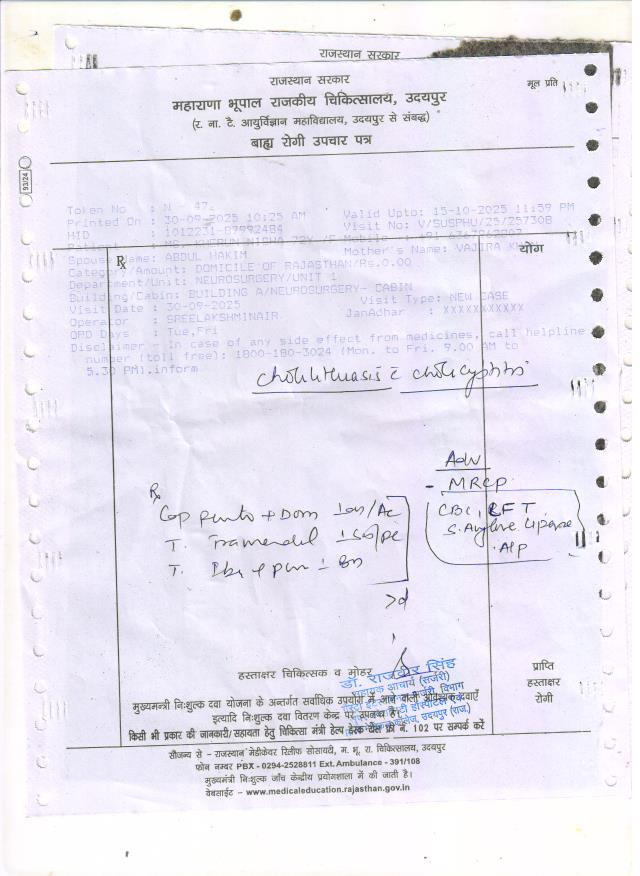 राजस्थान सरकार
राजस्थान सरकार
मूल प्रति
महाराणा भूपाल राजकीय चिकित्सालय, उदयपुर
(र. ना. टै. आयुर्विज्ञान महाविद्यालय, उदयपुर से संबद्ध)
बाह्य रोगी उपचार पत्र
93/24
Token No : N - 47
Printed On : 30-09-2025 10:25 AM Valid Upto: 15-10-2025 11:59 PM
HID : 1012231-87992484 Visit No: V/SUSPHU/25/257308
Spouse Name: ABDUL HAKIM Mother's Name: VAJIRA
Category/Amount: DOMICILE OF RAJASTHAN/Rs.0.00
Department/Unit: NEUROSURGERY/UNIT 1
Building/Cabin: BUILDING A/NEUROSURGERY- CABIN
Visit Date : 30-09-2025 Visit Type: NEW CASE
Operator : SREELAKSHMINAIR JanAdhar : XXXXXXXXXXX
OPD Days : Tue,Fri
Disclaimer - In case of any side effect from medicines, call helpline
number (toll free): 1800-180-3024 (Mon. to Fri. 9.00 AM to
5.30 PM).inform
℞
योग
Adv
- MRCP
CBC, LFT
S. Amylase Lipase
ALP
℞
Cap Panto + Dom
T. Tramadol
T.
हस्ताक्षर चिकित्सक व मोहर
डॉ. राजवीर सिंह
सहायक आचार्य (सर्जरी)
प्राप्ति
हस्ताक्षर
रोगी
मुख्यमन्त्री निःशुल्क दवा योजना के अन्तर्गत सर्वाधिक उपयोग में आने वाली आवश्यक दवाएँ
इत्यादि निःशुल्क दवा वितरण केन्द्र पर उपलब्ध है।
किसी भी प्रकार की जानकारी/सहायता हेतु चिकित्सा मंत्री हेल्प डेस्क फोन नं. 102 पर सम्पर्क करें
सौजन्य से - राजस्थान मेडीकेयर रिलीफ सोसायटी, म. भू. रा. चिकित्सालय, उदयपुर
फोन नम्बर PBX - 0294-2528811 Ext. Ambulance - 391/108
मुख्यमन्त्री निःशुल्क जाँच केन्द्रीय प्रयोगशाला में की जाती है।
वेबसाईट - www.medicaleducation.rajasthan.gov.in